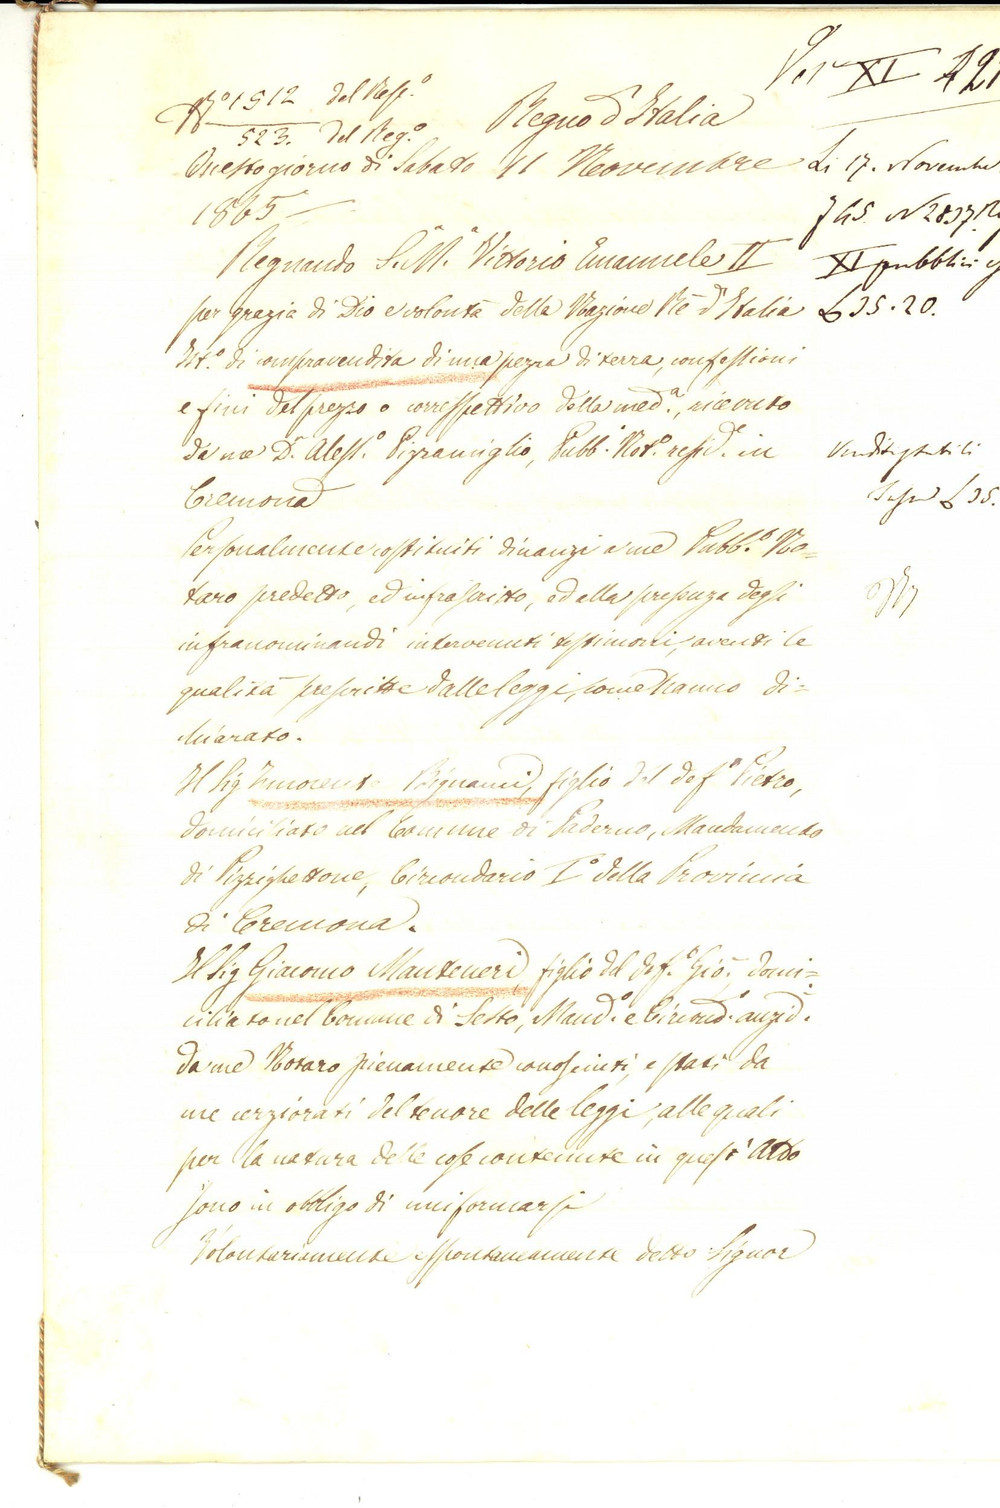 Vol XI 421
N.o 1912 del Rep.o
523. del Reg.o
Regno d'Italia
Questo giorno di Sabato 11 Novembre
1865
Regnando S. M. Vittorio Emanuele II
per grazia di Dio e volontà della Nazione Re d'Italia
Ist.o di compravendita di una pezza di terra, confessioni
e fini del prezzo o corrispettivo della med.a, ricevuto
da me D.r Aless.o Pizzamiglio, Pubb.o Not.o resid.e in
Cremona
Personalmente costituiti dinanzi a me Pubb.o No=
taro predetto, ed infrascritto, ed alla presenza degli
infranominandi intervenuti testimoni, aventi le
qualità prescritte dalle leggi, come hanno di=
chiarato.
Il Sig Innocente Bignami, figlio del def.o Pietro,
domiciliato nel Comune di Paderno, Mandamento
di Pizzighettone, Circondario I.o della Provincia
di Cremona.
Il Sig Giacomo Manteneri, figlio del def.o Gio., domi=
ciliato nel Comune di Sesto, Mand.o e Circond.o anzid.i
da me Notaro pienamente conosciuti, e stati da
me cerziorati del tenore delle leggi, alle quali
per la natura delle cose contenute in quest'Atto
sono in obbligo di uniformarsi
Volontariamente e spontaneamente detto Signor
Li 17. Novembre
765. N 2837
XI pubblici
£ 35.20.
£ 35.